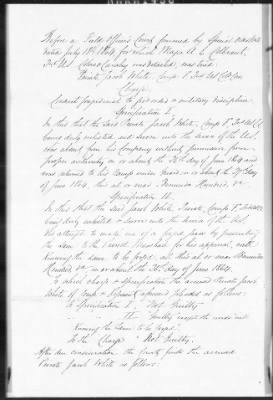 Before a Field Officers Court convened by Special Orders
dated July 1st 1864 for which Major A. G.
1st U.S. Colored Cavalry was detailed, was tried
Private Jacob White, Comp. F 1st U.S. C. Cav.
Charge
Conduct prejudicial to good order & military discipline
Specification I.
In this that the said Private Jacob White, Comp. F 1st U.S. C.
being duly enlisted and sworn into the service of the U.S.
was absent from his Company without permission from
proper authority on or about the 26th day of June 1864 and
was returned to his Camp under guard on or about the 27th day
of June 1864. this at or near Bermuda Hundred, Va
Specification II.
In this that the said Jacob White, Private, Comp. F 1st
being duly enlisted & sworn into the service of the U.S.
did attempt to make use of a forged pass by presenting
the same to the Provost Marshal for his approval, well
knowing the same to be forged, all this at or near Bermuda
Hundred, Va on or about the day of June 1864.
To which charge & Specification the accused Private Jacob
White of Comp & Regiment aforesaid pleaded as follows:
To Specification I. "Not Guilty"
" " II "Guilty except the words well
knowing the same to be forged."
To the Charge "Not Guilty"
After due consideration the Court finds the accused
Private Jacob White as follows: